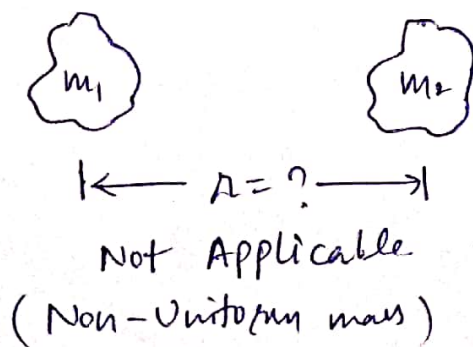 m₁ m₂
r = ?
Not Applicable
(Non-Uniform mass)